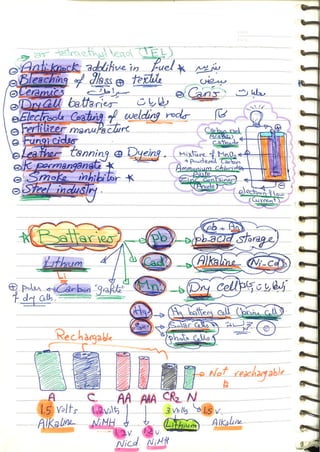 or tetraethyl lead (TEL)
Anti Knock additive in fuel *
Bleaching of glass ⊕ textile
Ceramics
Cans
Dry Cell batteries بطاريات
Electrode Coating of welding rods
Fertilizer manufacture
Fungicides
Leather tanning ⊕ Dyeing.
K permanganate *
Smoke inhibitor *
Steel industry.
Carbon rod
Cathode
Mixture of MnO₂
+ Powdered Carbon
Ammonium Chloride
Paste
Zinc Container
Anode
electron flow
(Current)
Battaries
Pb
pb + As
pb acid storage
Lithum
Cad
Alkaline
(Ni.Cd)
⊕ poles of Carbon
of dry cells.
Mn
Dry cell
Hg
Hg battery cell
Se
Solar cells
photo cells
Rechargable
Not reachargable
A C AA AAA CR2 N
1.5 volts
Alkaline
1.2 volts
NiMH
1.2v
Nicd
1.2v
NiMH
3 volts
Lithium
1.5v
Alkaline